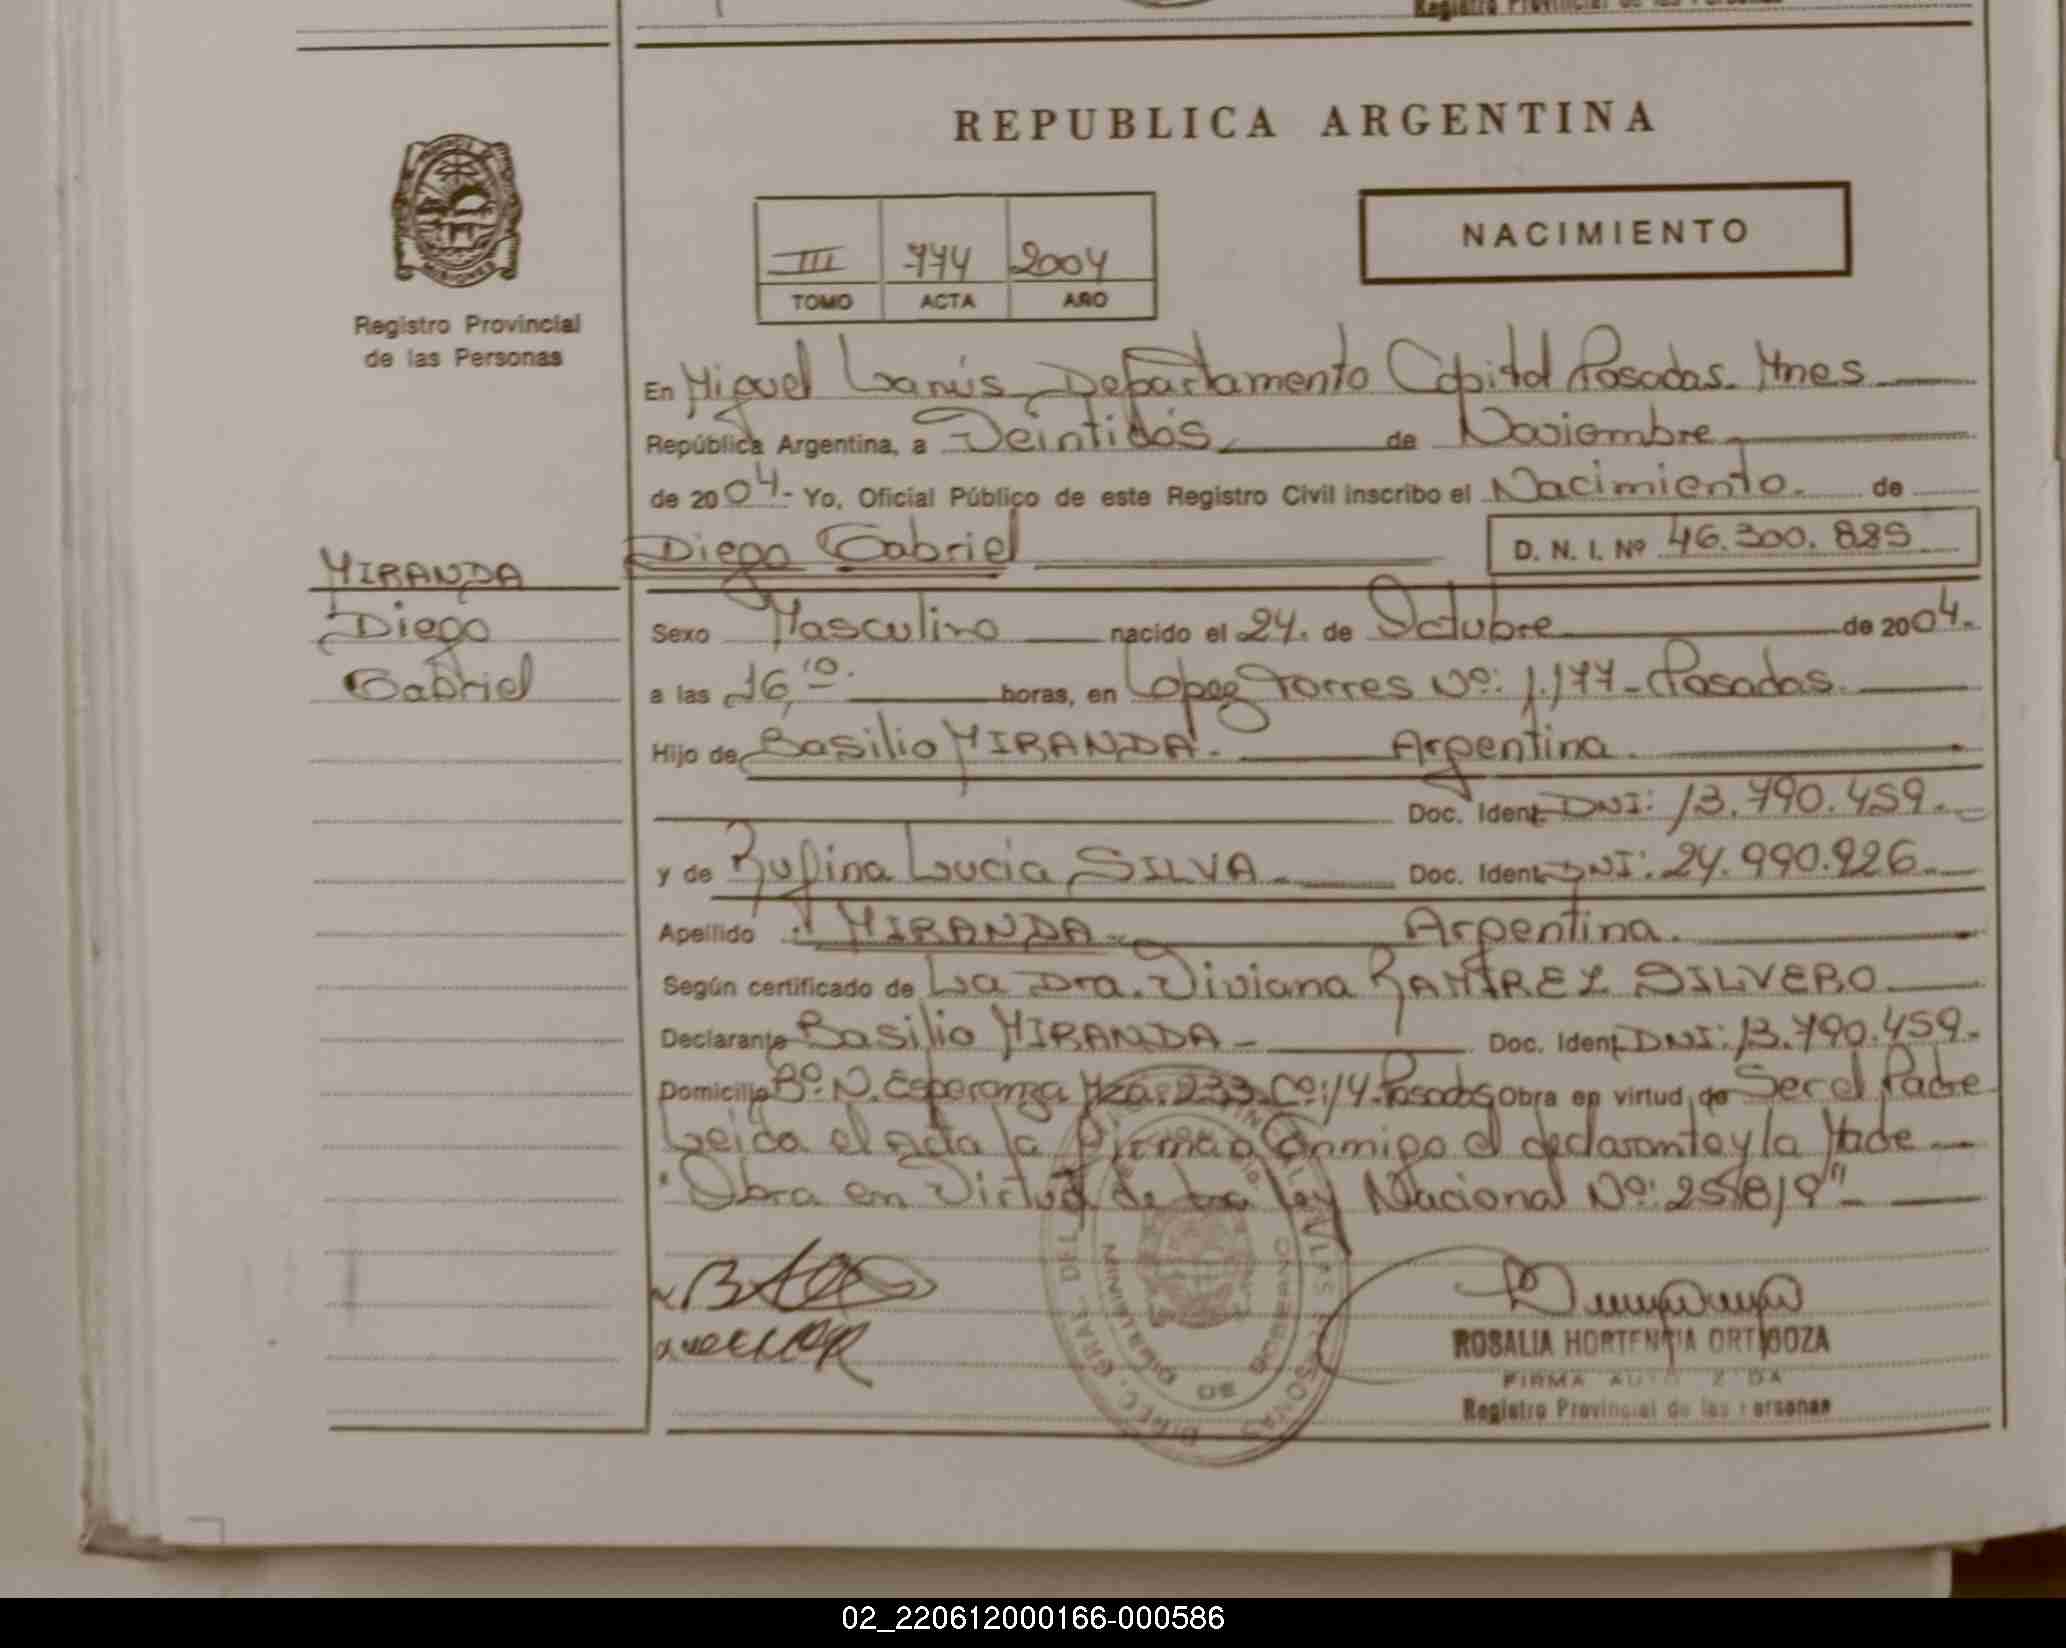 REPUBLICA ARGENTINA
NACIMIENTO
III 774 2004
TOMO ACTA AÑO
Registro Provincial
de las Personas
En Miguel Lanús, Departamento Capital Posadas. Mnes
República Argentina, a Veintidós de Noviembre
de 2004- Yo, Oficial Público de este Registro Civil inscribo el Nacimiento. de
Diego Gabriel D. N. I. Nº 46.300.889
MIRANDA
Diego
Gabriel
Sexo Masculino nacido el 24. de Octubre de 2004.
a las 16,10. horas, en Lopez Torres Nº: 1.177- Posadas.
Hijo de Basilio MIRANDA. Argentina.
Doc. Ident. DNI: 13.790.459.
y de Rufina Lucia SILVA Doc. Ident. DNI: 24.990.926
Apellido : MIRANDA Argentina.
Según certificado de La Dra. Viviana RAMIREZ SILVERO
Declarante Basilio MIRANDA - Doc. Ident. DNI: 13.790.459.
Domicilio Bº. N. Esperanza Mza: 233. Cº: 14. Posadas Obra en virtud de Ser el Padre
Leida el Acta la firman Conmigo el declarante y la Made
"Obra en Virtud de la Ley Nacional Nº: 25.819"
ROSALIA HORTENCIA ORTIGOZA
FIRMA AUTORIZADA
Registro Provincial de las Personas
02_220612000166-000586